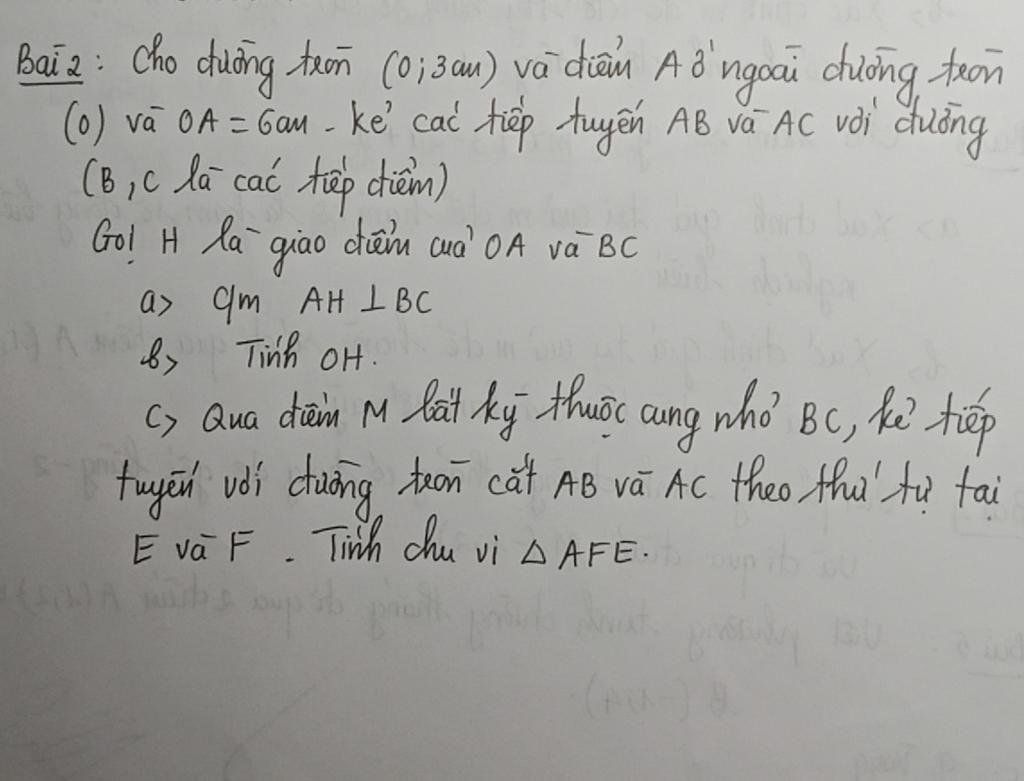 Bài 2: Cho đường tròn (O; 3cm) và điểm A ở ngoài đường tròn
(O) và OA = 6cm - kẻ các tiếp tuyến AB và AC với đường
(B, C là các tiếp điểm)
Gọi H là giao điểm của OA và BC
a> C/m AH ⊥ BC
b> Tính OH.
C> Qua điểm M bất kỳ thuộc cung nhỏ BC, kẻ tiếp
tuyến với đường tròn cắt AB và AC theo thứ tự tại
E và F. Tính chu vi △ AFE.